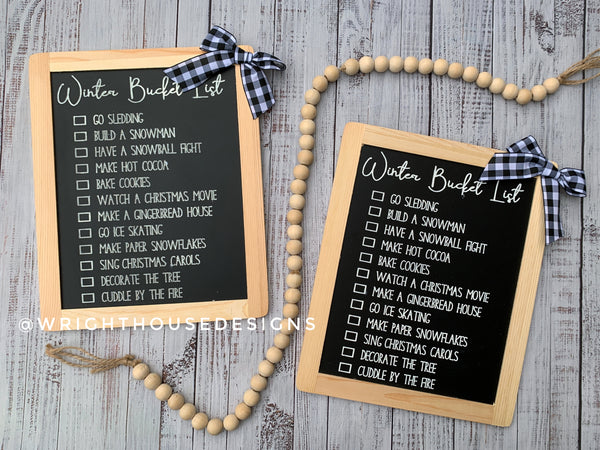 Winter Bucket List
GO SLEDDING
BUILD A SNOWMAN
HAVE A SNOWBALL FIGHT
MAKE HOT COCOA
BAKE COOKIES
WATCH A CHRISTMAS MOVIE
MAKE A GINGERBREAD HOUSE
GO ICE SKATING
MAKE PAPER SNOWFLAKES
SING CHRISTMAS CAROLS
DECORATE THE TREE
CUDDLE BY THE FIRE
Winter Bucket List
GO SLEDDING
BUILD A SNOWMAN
HAVE A SNOWBALL FIGHT
MAKE HOT COCOA
BAKE COOKIES
WATCH A CHRISTMAS MOVIE
MAKE A GINGERBREAD HOUSE
GO ICE SKATING
MAKE PAPER SNOWFLAKES
SING CHRISTMAS CAROLS
DECORATE THE TREE
CUDDLE BY THE FIRE
@WRIGHTHOUSEDESIGNS